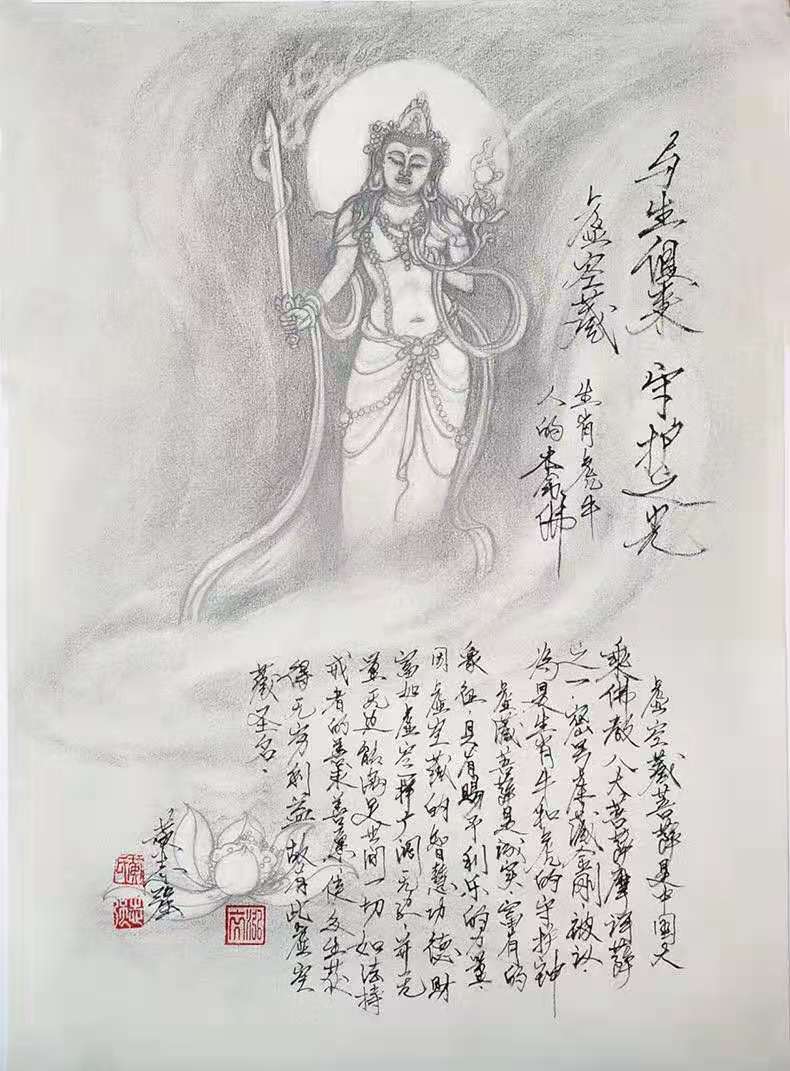 与生俱来 守护之光
虚空藏
生肖虎牛
人的本命佛
虚空藏菩萨是中国大
乘佛教八大菩萨摩诃萨
之一，密号库藏金刚，被认
为是生肖牛和虎的守护神
虚藏菩萨是诚实、富有的
象征具有赐予利乐的力量、
因虚空藏的智慧功德财
富如虚空一样广阔无边，并无
量无边能满足世间一切如法持
戒者的善求善愿使众生获
得无穷利益故有此虚空
藏圣名、
黄志